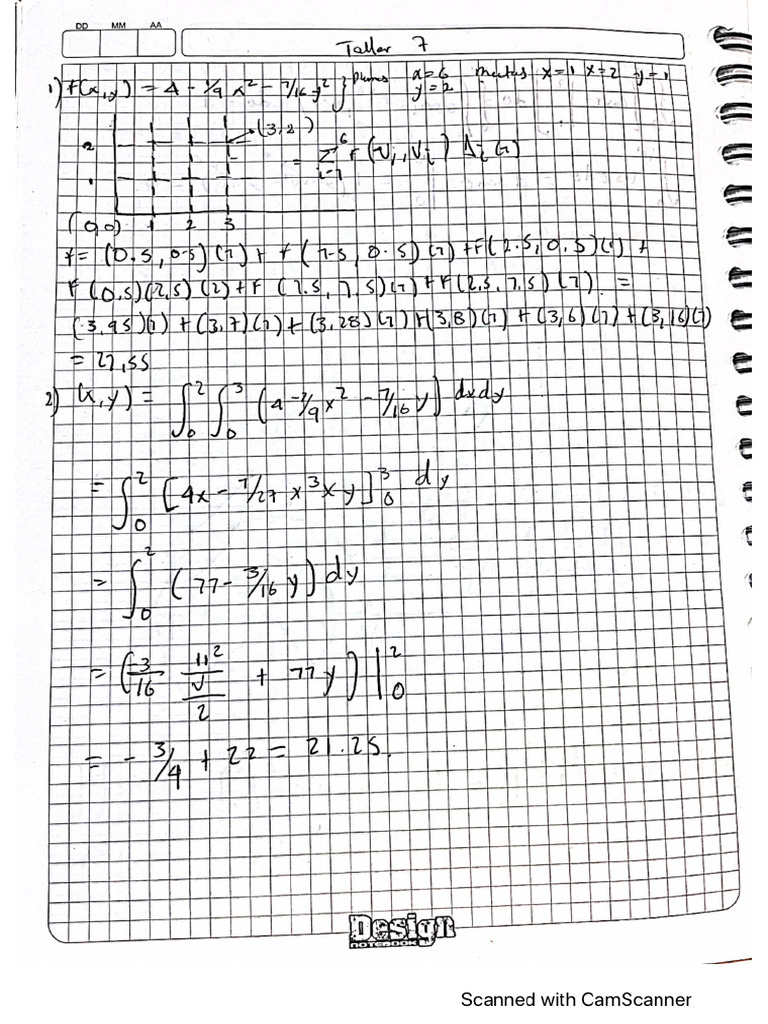 DD MM AA
Taller 7
1) f(x,y) = 4 - 1/9 x² - 1/16 y² } x=6 x=1 x=2 y=1
y=2
2 (3,2)
1 = Σ⁶ᵢ₌₁ F (Uᵢ, Vᵢ) Δᵢ (1)
(0,0) 1 2 3
f= (0.5, 0.5) (1) + f (1.5, 0.5) (1) + F(2.5, 0.5)(1) +
F (0.5)(1,5) (1) + F (1.5, 1.5)(1) + F(2.5, 1.5) (1) =
(3,95)(1) + (3,7)(1) + (3,28)(1) + (3,8)(1) + (3,6)(1) + (3,16)(1)
= 21,55
2) (x,y) = ∫₀² ∫₀³ (4 - 1/9 x² - 1/16 y) dxdy
= ∫₀² [4x - 1/27 x³ x y]₀³ dy
= ∫₀² (11 - 3/16 y) dy
= (-3/16 y²/2 + 11 y) |₀²
= - 3/4 + 22 = 21.25.
Design
NOTEBOOK
Scanned with CamScanner